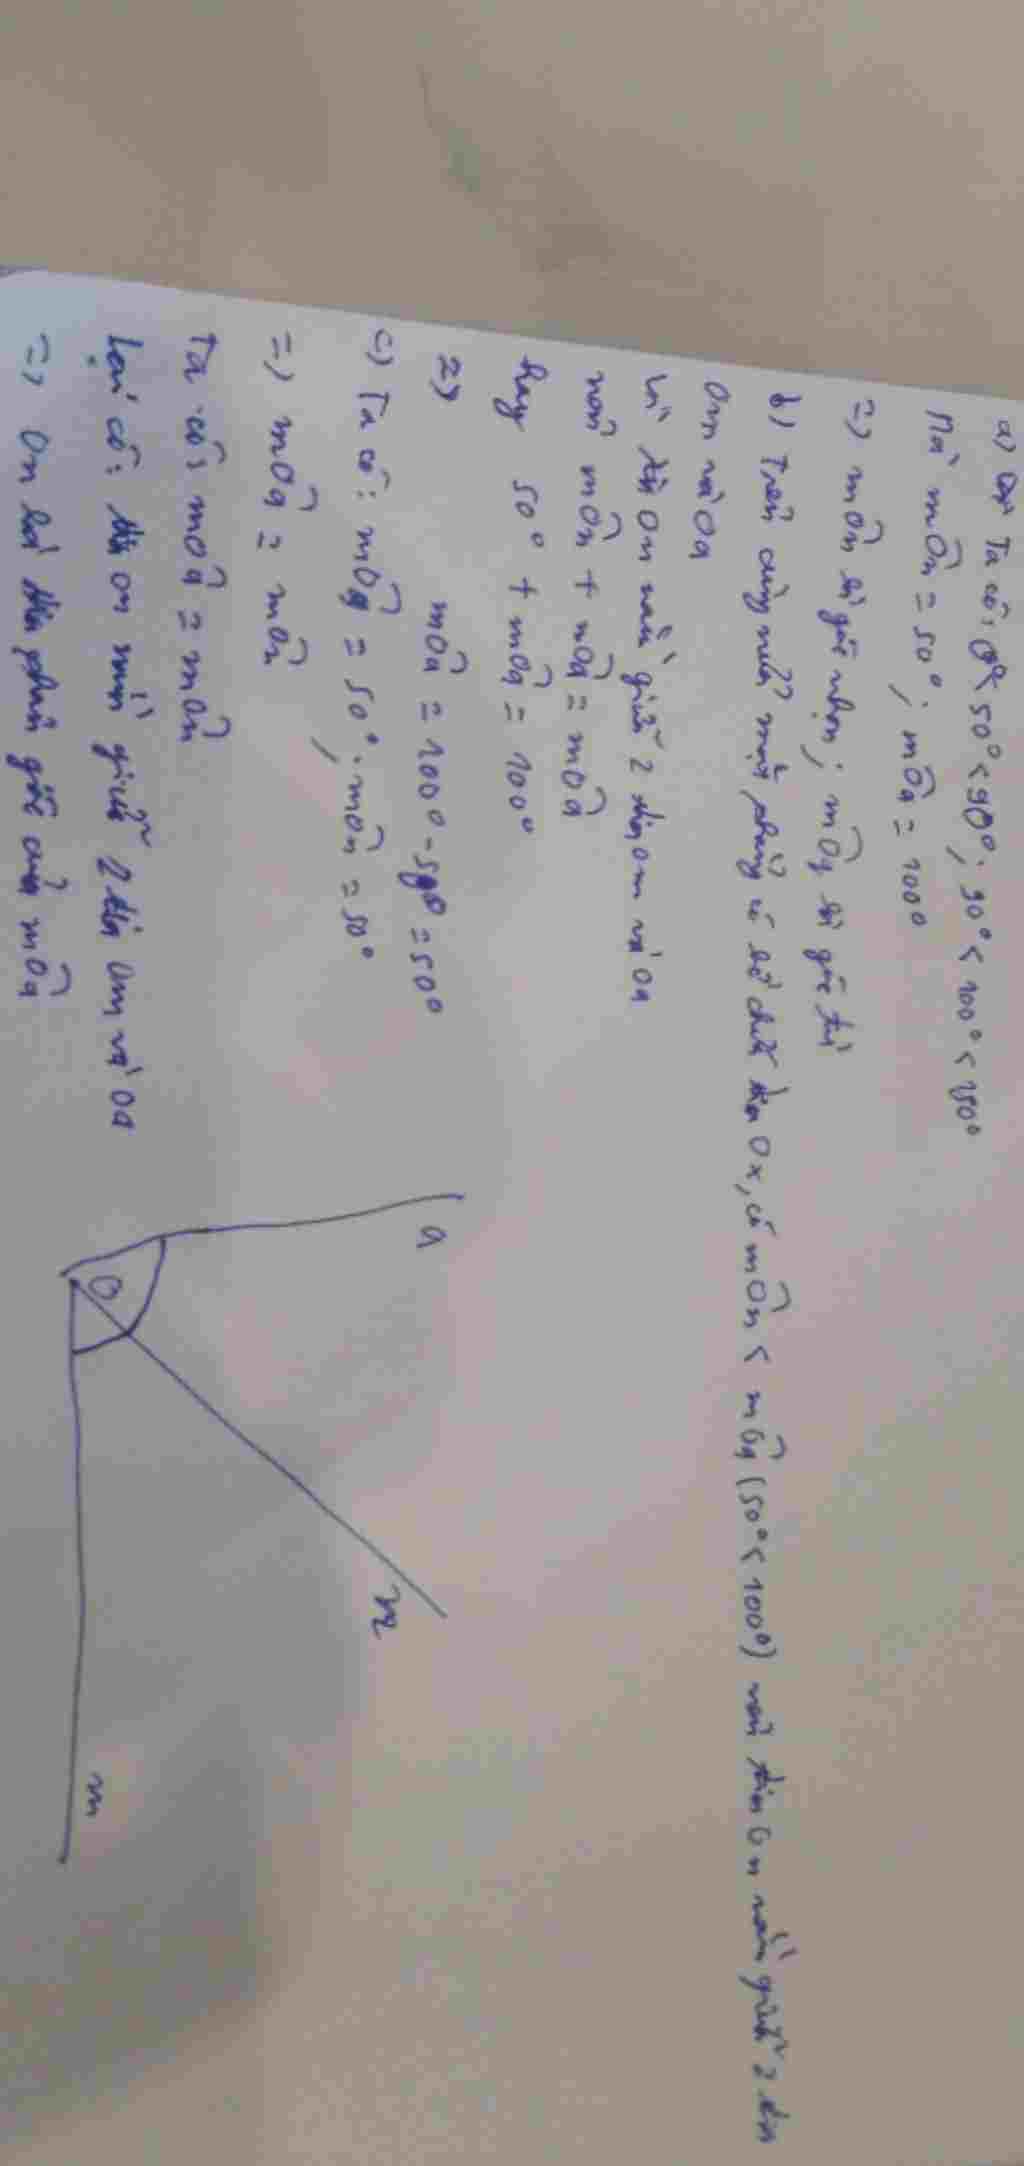 a) Ta có: 0°< 50° < 90°; 90° < 100° < 180°
Mà mÔn = 50°; mÔq = 100°
=) mÔn là góc nhọn; mÔq là góc tù
b) Trên cùng nửa mặt phẳng có bờ chứa tia Ox, có mÔn < mÔq (50° < 100°) nên tia On nằm giữa 2 tia
Om và Oq
Vì tia On nằm giữa 2 tia Om và Oq
nên mÔn + nÔq = mÔq
hay 50° + mÔq = 100°
=) mÔq = 100° - 50° = 50°
c) Ta có: mÔq = 50°; mÔn = 50°
=) mÔq = mÔn
Ta có: mÔq = mÔn
Lại có: tia On nằm giữa 2 tia Om và Oq
=) On là tia phân giác của mÔq
q
O
n
m